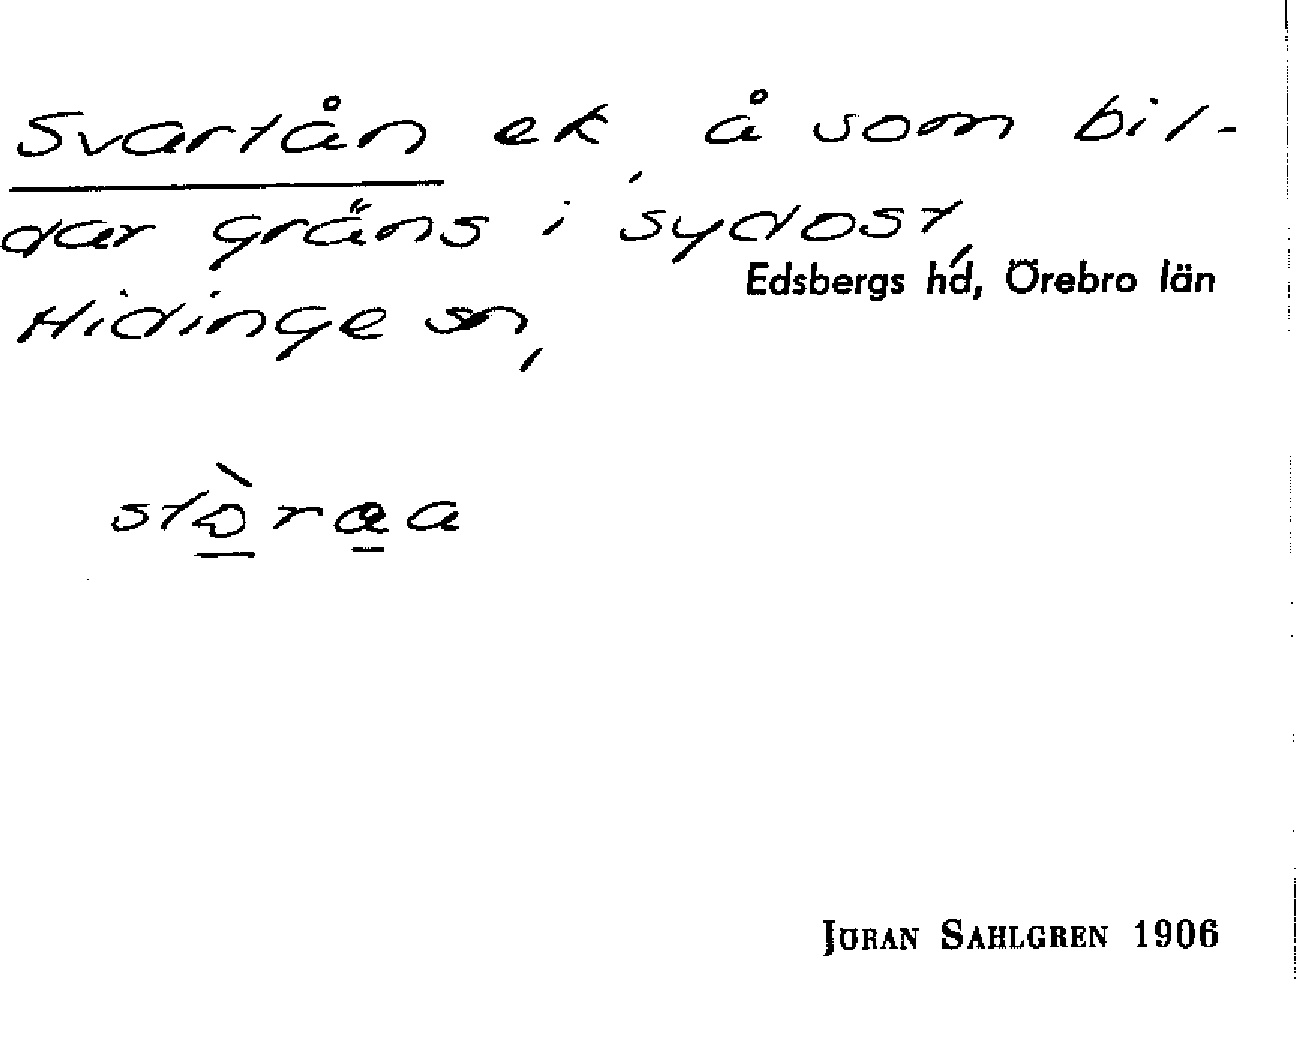 Svartån ek, å som bil-
dar gräns i sydost,
Edsbergs hd, Örebro län
Hidinge sn,
stòraa
JÖRAN SAHLGREN 1906